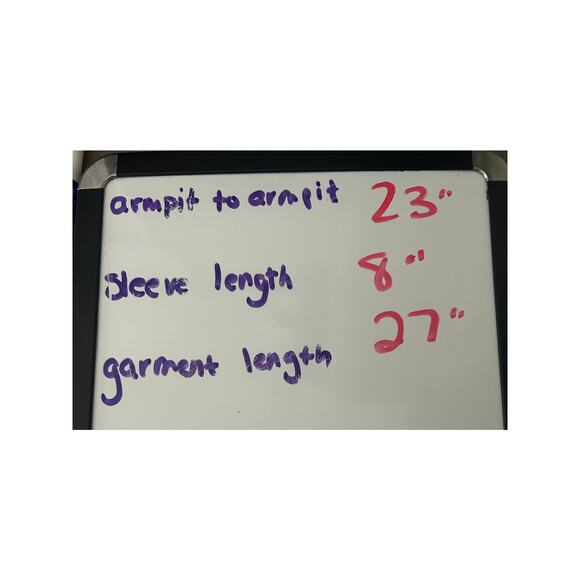 armpit to armpit 23"
sleeve length 8"
garment length 27"